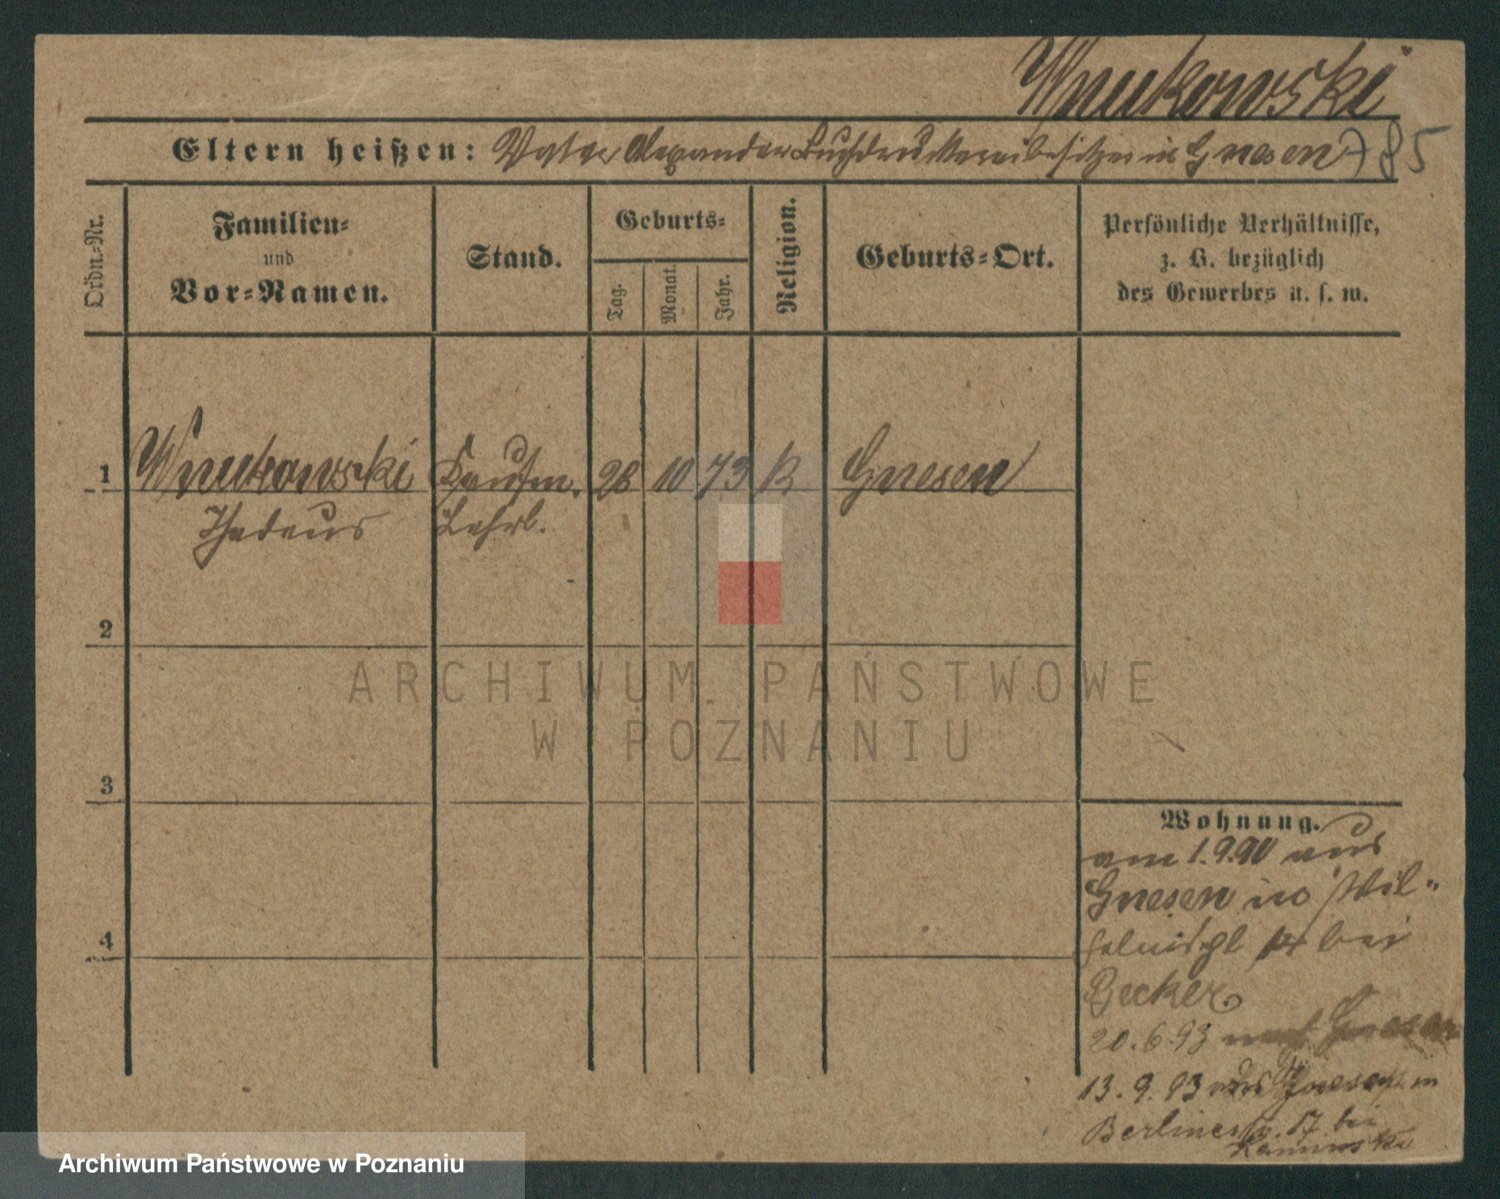 Wnukowski
Eltern heißen: Vater Alexander Buchdruckereibesitzer in Gnesen
785
Ordn.-Nr.
Familien-
und
Vor-Namen.
Stand.
Geburts-
Tag.
Monat.
Jahr.
Religion.
Geburts-Ort.
Persönliche Verhältnisse,
z. B. bezüglich
des Gewerbes u. s. w.
1 Wnukowski Kaufm. 28 10 73 K Gnesen
Thadeus Lehrl.
2
3
4
Wohnung.
am 1.9.90 aus
Gnesen in Wil-
helmspl 14 bei
Becker
20.6.93 nach Gnesen
13.9.93 aus Gnesen in
Berlinerstr. 17 bei
Kaminski
ARCHIWUM PAŃSTWOWE
W POZNANIU
Archiwum Państwowe w Poznaniu